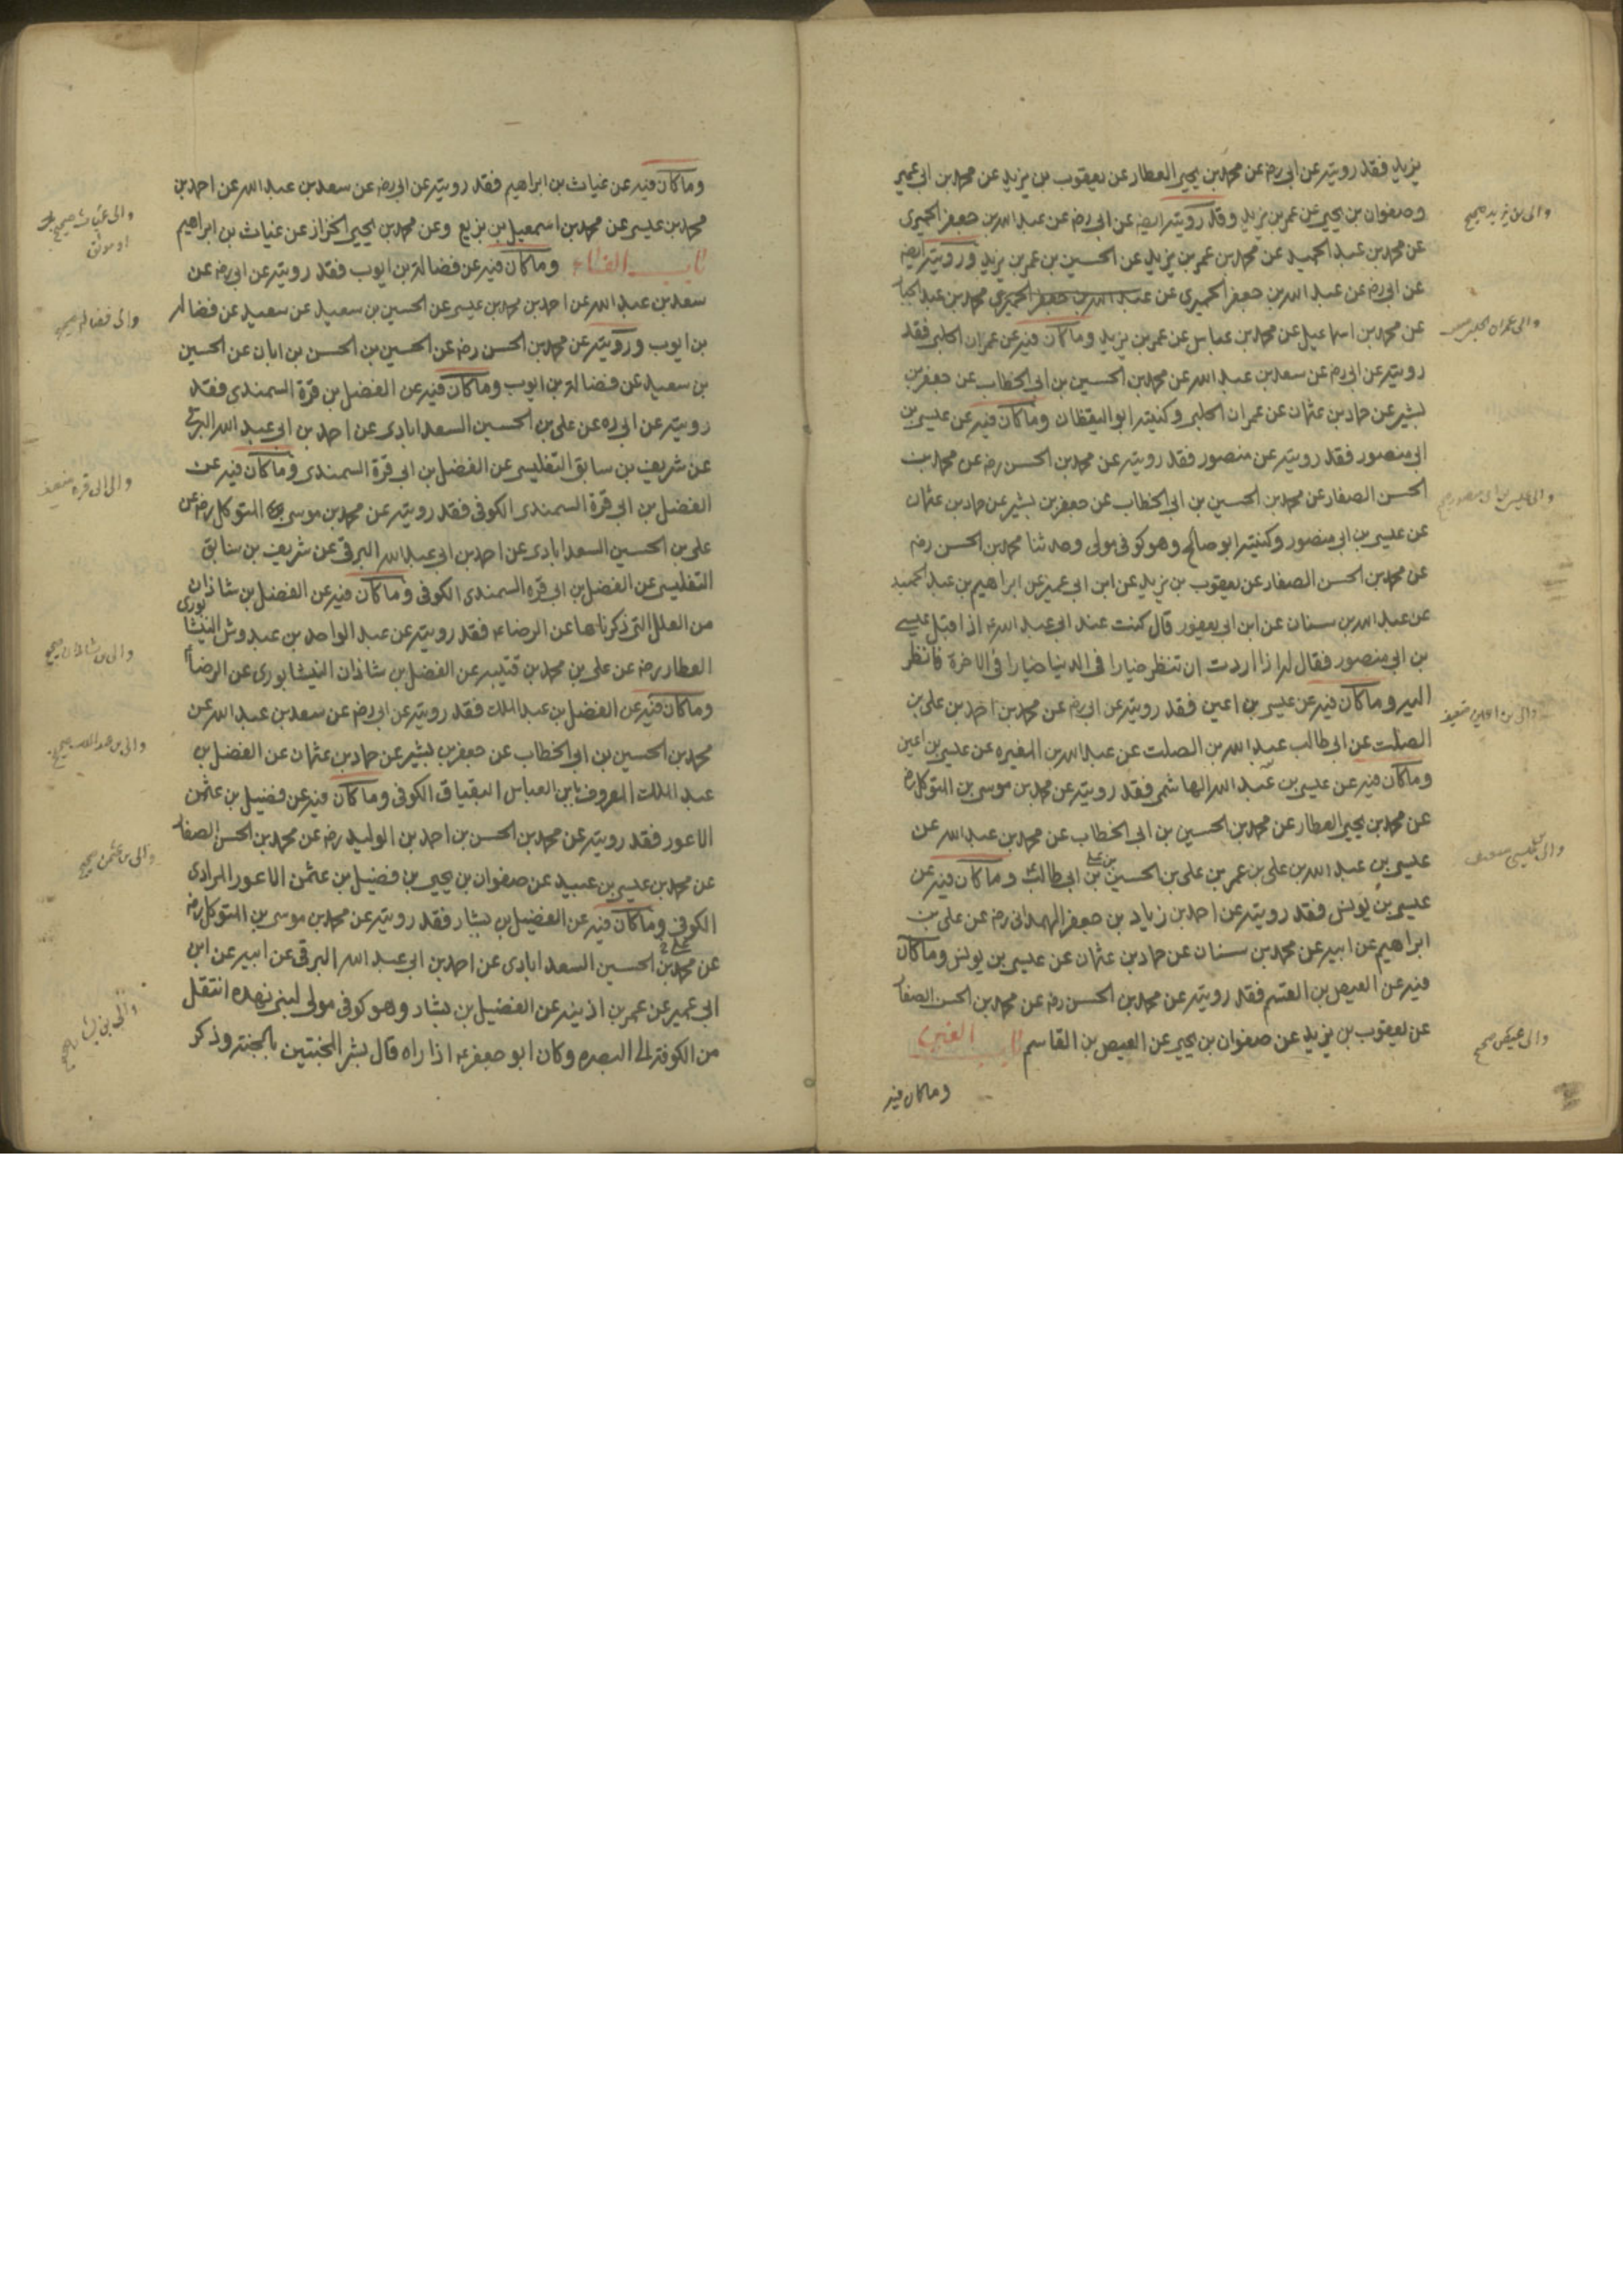 يزيد فقد رويته عن ابي رضه عن محمد بن يحيى العطار عن يعقوب بن يزيد عن محمد بن ابي عمير
وصفوان بن يحيى عن عمر بن يزيد وقد رويته ايضه عن ابي رضه عن عبد الله بن جعفر الحميرى
عن محمد بن عبد الحميد عن محمد بن عمر بن يزيد عن الحسين بن عمر بن يزيد ورويته ايضه
عن ابي رضه عن عبد الله بن جعفر الحميرى عن عبد الله بن جعفر الحميري محمد بن عبد الجبا
عن محمد بن اسماعيل عن محمد بن عباس عن عمر بن يزيد وماكان فيه عن عمران الحلبي فقد
رويته عن ابي رضه عن سعد بن عبد الله عن محمد بن الحسين بن ابي الخطاب عن جعفر بن
بشير عن حماد بن عثمان عن عمران الحلبي وكنيته ابو اليقظان وماكان فيه عن عيسى بن
ابي منصور فقد رويته عن منصور فقد رويته عن محمد بن الحسن رضه عن محمد بن
الحسن الصفار عن محمد بن الحسين بن ابي الخطاب عن جعفر بن بشير عن حماد بن عثمان
عن عيسى بن ابي منصور وكنيته ابو صالح وهو كوفي مولى وحدثنا محمد بن الحسن رضه
عن محمد بن الحسن الصفار عن يعقوب بن يزيد عن ابن ابي عمير عن ابراهيم بن عبد الحميد
عن عبد الله بن سنان عن ابن ابي يعفور قال كنت عند ابي عبد الله ع اذا قبل عيسى
بن ابي منصور فقال له اذا اردت ان تنظر خيارا في الدنيا خيارا في الاخرة فانظر
اليه وماكان فيه عن عيسى بن اعين فقد رويته عن ابي رضه عن محمد بن احمد بن علي بن
الصلت عن ابي طالب عبد الله بن الصلت عن عبد الله بن المغيره عن عيسى بن اعين
وماكان فيه عن عيسى بن عبد الله الهاشمي فقد رويته عن محمد بن موسى بن المتوكل رضه
عن محمد بن يحيى العطار عن محمد بن الحسين بن ابي الخطاب عن محمد بن عبد الله عن
عيسى بن عبد الله بن علي بن عمر بن علي بن الحسين بن علي بن ابي طالب وماكان فيه عن
عيسى بن يونس فقد رويته عن احمد بن زياد بن جعفر الهمداني رضه عن علي بن
ابراهيم عن ابيه عن محمد بن سنان عن حماد بن عثمان عن عيسى بن يونس وماكان
فيه عن العيص بن القسم فقد رويته عن محمد بن الحسن رضه عن محمد بن الحسن الصفا
عن يعقوب بن يزيد عن صفوان بن يحيى عن العيص بن القاسم باب الغين
وماكان فيه
والى بن يزيد صحيح
والى عمران الحلبي
والى عيسى بن ابي منصور صحيح
والى بن اعين ضعيف
والى عيسى ضعيف
والى عيص صحيح
وماكان فيه عن غياث بن ابراهيم فقد رويته عن ابي رضه عن سعد بن عبد الله عن احمد بن
محمد بن عيسى عن محمد بن اسمعيل بن بزيع وعن محمد بن يحيى الخزاز عن غياث بن ابراهيم
باب الفاء وماكان فيه عن فضالة بن ايوب فقد رويته عن ابي رضه عن
سعد بن عبد الله عن احمد بن محمد بن عيسى عن الحسين بن سعيد عن سعيد عن فضاله
بن ايوب ورويته عن محمد بن الحسن رضه عن الحسين بن الحسن بن ابان عن الحسين
بن سعيد عن فضالة بن ايوب وماكان فيه عن الفضل بن قرة السمندى فقد
رويته عن ابي ره عن علي بن الحسين السعدابادى عن احمد بن ابي عبد الله البرقي
عن شريف بن سابق التفليسى عن الفضل بن ابي قرة السمندى وماكان فيه عن
الفضل بن ابي قرة السمندى الكوفي فقد رويته عن محمد بن موسى بن المتوكل رضه عن
علي بن الحسين السعدابادى عن احمد بن ابي عبد الله البرقي عن شريف بن سابق
التفليسى عن الفضل بن ابي قره السمندى الكوفي وماكان فيه عن الفضل بن شاذان
من العلل التي ذكرناها عن الرضا ع فقد رويته عن عبد الواحد بن عبدوش النيشابورى
العطار رضه عن علي بن محمد بن قتيبه عن الفضل بن شاذان النيشابورى عن الرضا ع
وماكان فيه عن الفضل بن عبد الملك فقد رويته عن ابي رضه عن سعد بن عبد الله عن
محمد بن الحسين بن ابي الخطاب عن جعفر بن بشير عن حماد بن عثمان عن الفضل بن
عبد الملك المعروف بابن العباس البقباق الكوفي وماكان فيه عن فضيل بن عثمن
الاعور فقد رويته عن محمد بن الحسن بن احمد بن الوليد رضه عن محمد بن الحسن الصفا
عن محمد بن عيسى بن عبيد عن صفوان بن يحيى بن فضيل بن عثمن الاعور المرادى
الكوفي وماكان فيه عن الفضيل بن يسار فقد رويته عن محمد بن موسى بن المتوكل رضه
عن محمد بن الحسين السعدابادى عن احمد بن ابي عبد الله البرقي عن ابيه عن ابن
ابي عمير عن عمر بن اذينه عن الفضيل بن يشار وهو كوفي مولى لبني نهده انتقل
من الكوفة الى البصره وكان ابو جعفر ع اذا راه قال بشر المخبتين بالجنة وذكر
والى غياث صحيح
او موثق
والى فضاله صحيح
والى ابي قره ضعيف
والى بن شاذان صحيح
والى بن عبد الملك صحيح
والى بن عثمن صحيح
والى بن يسار